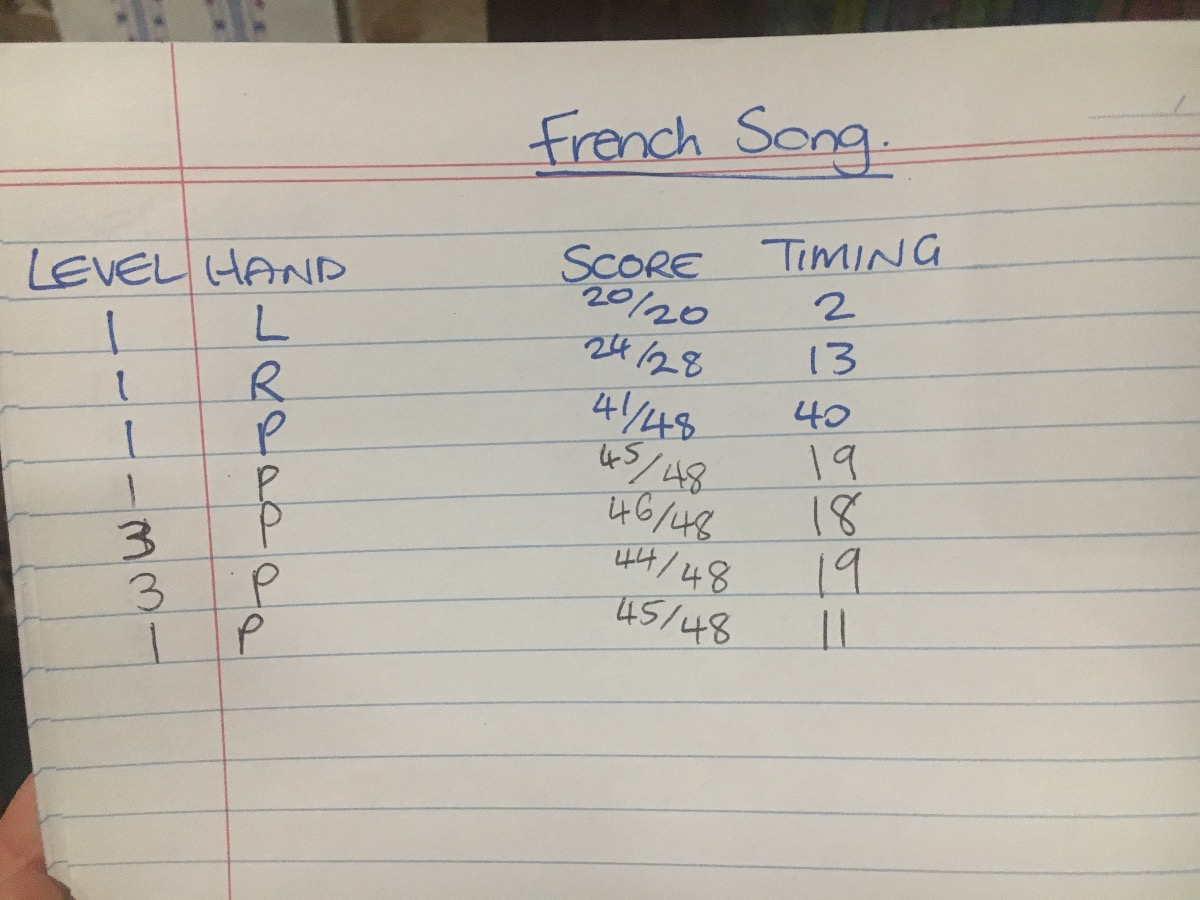 French Song.
LEVEL HAND SCORE TIMING
1 L 20/20 2
1 R 24/28 13
1 P 41/48 40
1 P 45/48 19
3 P 46/48 18
3 P 44/48 19
1 P 45/48 11